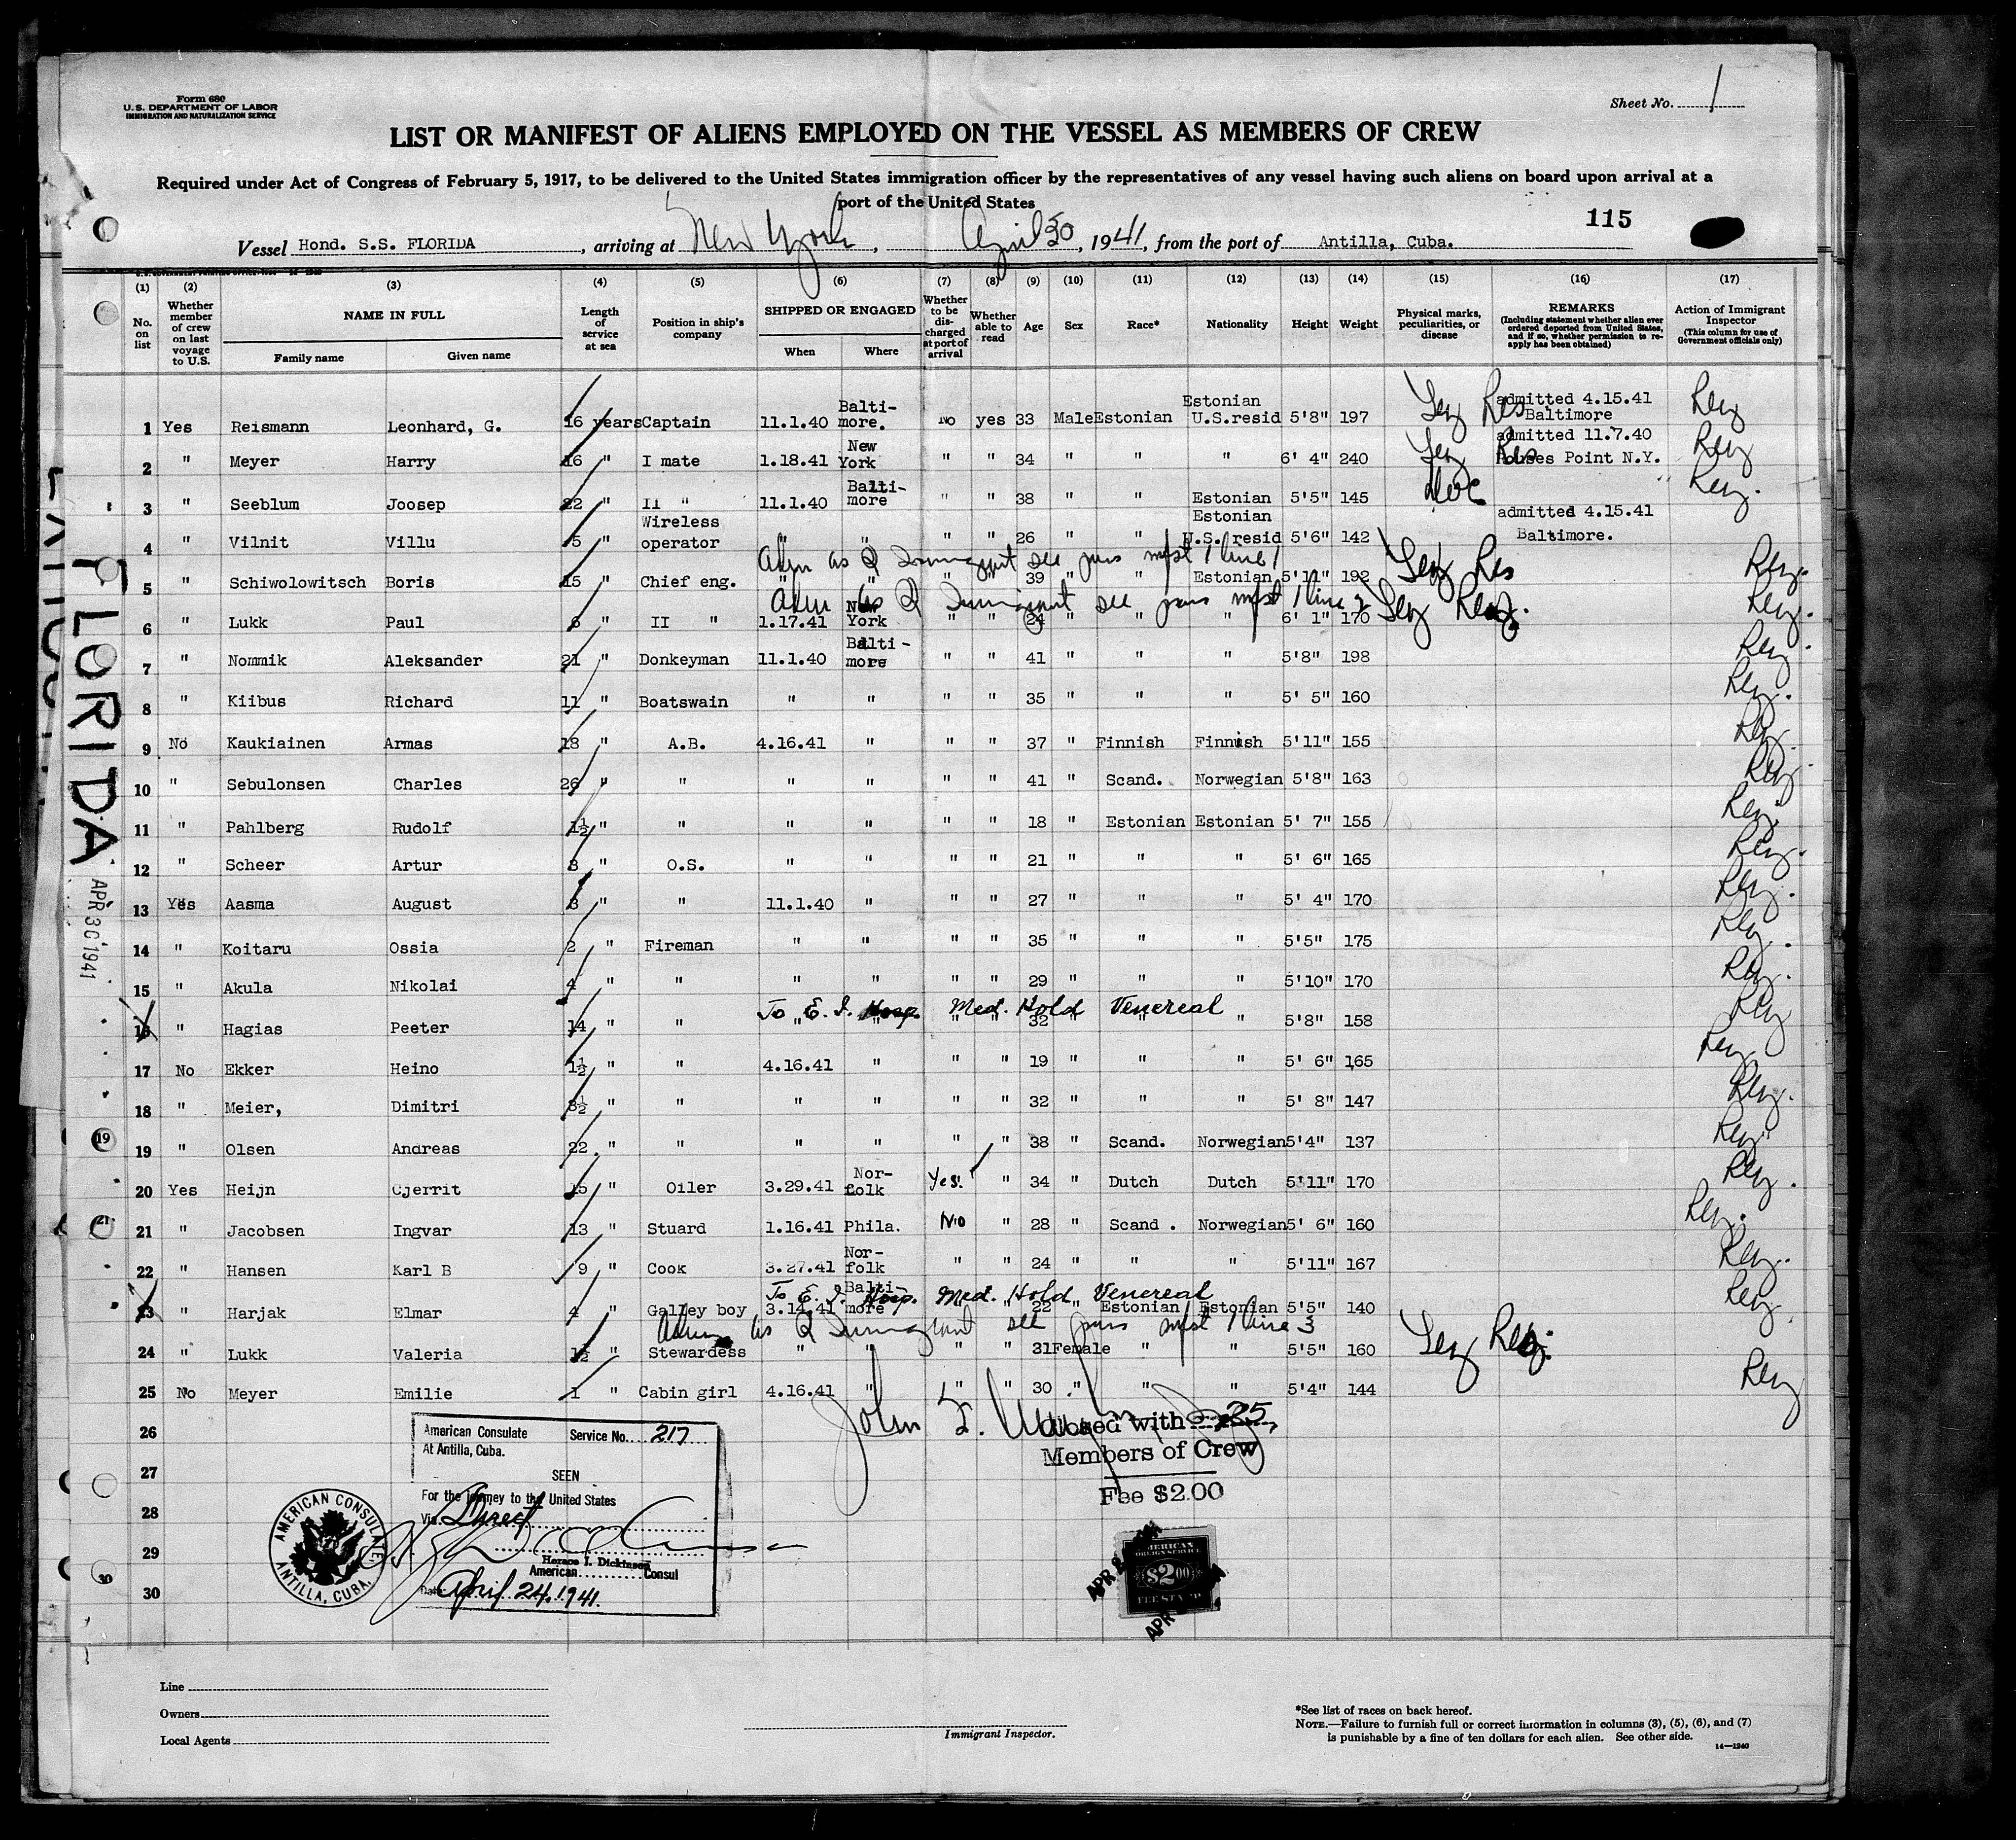 Form 680
U.S. DEPARTMENT OF LABOR
IMMIGRATION AND NATURALIZATION SERVICE
Sheet No. 1
LIST OR MANIFEST OF ALIENS EMPLOYED ON THE VESSEL AS MEMBERS OF CREW
Required under Act of Congress of February 5, 1917, to be delivered to the United States immigration officer by the representatives of any vessel having such aliens on board upon arrival at a
port of the United States
115
Vessel Hond. S.S. FLORIDA, arriving at New York, April 30, 1941, from the port of Antilla, Cuba.
(1) (2) (3) (4) (5) (6) (7) (8) (9) (10) (11) (12) (13) (14) (15) (16) (17)
No. on list
Whether member of crew on last voyage to U.S.
NAME IN FULL
Family name Given name
Length of service at sea
Position in ship's company
SHIPPED OR ENGAGED
When Where
Whether to be discharged at port of arrival
Whether able to read
Age
Sex
Race*
Nationality
Height
Weight
Physical marks, peculiarities, or disease
REMARKS
(Including statement whether alien ever ordered deported from United States, and if so, whether permission to reapply has been obtained)
Action of Immigrant Inspector
(This column for use of Government officials only)
1 Yes Reismann Leonhard, G. 16 years Captain 11.1.40 Balti-more. No yes 33 Male Estonian Estonian U.S.resid 5'8" 197 admitted 4.15.41 Baltimore
2 " Meyer Harry 16 " I mate 1.18.41 New York " " 34 " " " 6' 4" 240 admitted 11.7.40 Rouses Point N.Y.
3 " Seeblum Joosep 22 " II " 11.1.40 Balti-more " " 38 " " Estonian 5'5" 145
4 " Vilnit Villu 5 " Wireless operator " " " " 26 " " Estonian U.S. resid 5'6" 142 admitted 4.15.41 Baltimore.
Adm as Q Immigrant see pass mfst 1 line 1
5 " Schiwolowitsch Boris 15 " Chief eng. " " " " 39 " " Estonian 5'11" 192
Adm as Q Immigrant see pass mfst 1 line 2
6 " Lukk Paul 6 " II " 1.17.41 New York " " 24 " " " 6' 1" 170
7 " Nommik Aleksander 21 " Donkeyman 11.1.40 Balti-more " " 41 " " " 5'8" 198
8 " Kiibus Richard 11 " Boatswain " " " " 35 " " " 5' 5" 160
9 No Kaukiainen Armas 18 " A.B. 4.16.41 " " " 37 " Finnish Finnish 5'11" 155
10 " Sebulonsen Charles 26 " " " " " " 41 " Scand. Norwegian 5'8" 163
11 " Pahlberg Rudolf 1½ " " " " " " 18 " Estonian Estonian 5' 7" 155
12 " Scheer Artur 3 " O.S. " " " " 21 " " " 5' 6" 165
13 Yes Aasma August 3 " " 11.1.40 " " " 27 " " " 5' 4" 170
14 " Koitaru Ossia 2 " Fireman " " " " 35 " " " 5'5" 175
15 " Akula Nikolai 4 " " " " " " 29 " " " 5'10" 170
To E. I. Hosp. Med. Hold Venereal
16 " Hagias Peeter 14 " " " " " " 32 " " " 5'8" 158
17 No Ekker Heino 1½ " " 4.16.41 " " " 19 " " " 5' 6" 165
18 " Meier, Dimitri 3½ " " " " " " 32 " " " 5' 8" 147
19 " Olsen Andreas 22 " " " " " " 38 " Scand. Norwegian 5'4" 137
20 Yes Heijn Gjerrit 15 " Oiler 3.29.41 Nor-folk Yes. " 34 " Dutch Dutch 5'11" 170
21 " Jacobsen Ingvar 13 " Stuard 1.16.41 Phila. No " 28 " Scand. Norwegian 5' 6" 160
22 " Hansen Karl B 9 " Cook 3.27.41 Nor-folk " " 24 " " " 5'11" 167
To E. I. Hosp. Med. Hold Venereal
23 " Harjak Elmar 4 " Galley boy 3.14.41 Balti-more " " 22 " Estonian Estonian 5'5" 140
Adm as Q Immigrant see pass mfst 1 line 3
24 " Lukk Valeria 1½ " Stewardess " " " " 31 Female " " 5'5" 160
25 No Meyer Emilie 1 " Cabin girl 4.16.41 " " " 30 " " " 5'4" 144
26
27
28
29
30
American Consulate
At Antilla, Cuba.
Service No. 217
SEEN
For the journey to the United States
Via. Direct
Horace J. Dickinson
American Consul
Date: April 24, 1941.
AMERICAN CONSULATE
ANTILLA, CUBA.
Closed with 25
Members of Crew
Fee $2.00
AMERICAN
FOREIGN SERVICE
$2.00
FEE STAMP
FLORIDA
APR 30 1941
Line
Owners
Local Agents
Immigrant Inspector.
*See list of races on back hereof.
NOTE.—Failure to furnish full or correct information in columns (3), (5), (6), and (7)
is punishable by a fine of ten dollars for each alien. See other side.
14—1240